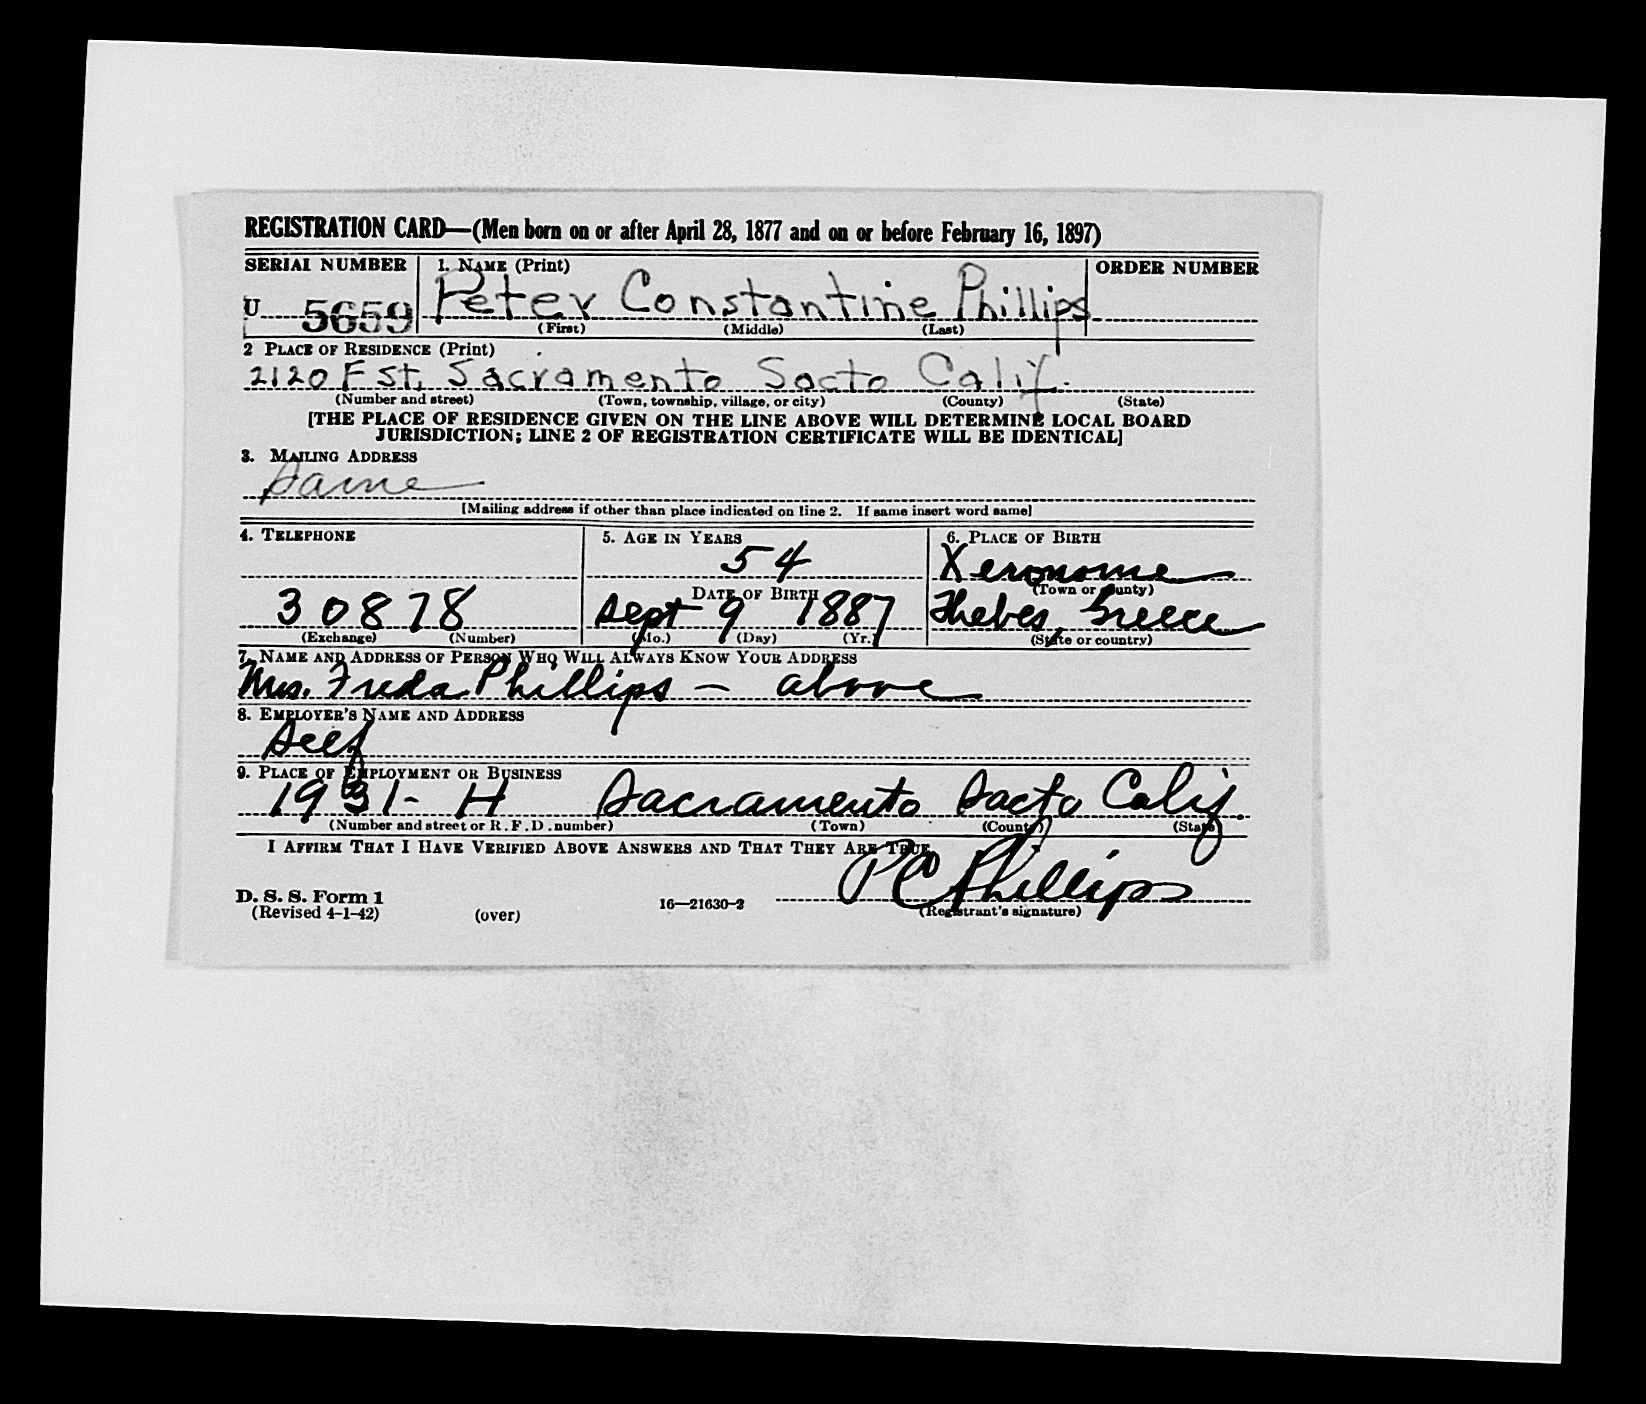 REGISTRATION CARD—(Men born on or after April 28, 1877 and on or before February 16, 1897)
SERIAL NUMBER 1. NAME (Print) ORDER NUMBER
U 5659 Peter Constantine Phillips
(First) (Middle) (Last)
2 PLACE OF RESIDENCE (Print)
2120 F St. Sacramento Sacto Calif.
(Number and street) (Town, township, village, or city) (County) (State)
[THE PLACE OF RESIDENCE GIVEN ON THE LINE ABOVE WILL DETERMINE LOCAL BOARD
JURISDICTION; LINE 2 OF REGISTRATION CERTIFICATE WILL BE IDENTICAL]
3. MAILING ADDRESS
Same
[Mailing address if other than place indicated on line 2. If same insert word same]
4. TELEPHONE 5. AGE IN YEARS 6. PLACE OF BIRTH
54 Xeronome
DATE OF BIRTH (Town or county)
30878 Sept 9 1887 Thebes, Greece
(Exchange) (Number) (Mo.) (Day) (Yr.) (State or country)
7. NAME AND ADDRESS OF PERSON WHO WILL ALWAYS KNOW YOUR ADDRESS
Mrs. Freda Phillips — above
8. EMPLOYER'S NAME AND ADDRESS
Self
9. PLACE OF EMPLOYMENT OR BUSINESS
1931- H Sacramento Sacto Calif.
(Number and street or R. F. D. number) (Town) (County) (State)
I AFFIRM THAT I HAVE VERIFIED ABOVE ANSWERS AND THAT THEY ARE TRUE.
P C Phillips
D. S. S. Form 1
(Revised 4-1-42) (over) 16—21630-2 (Registrant's signature)